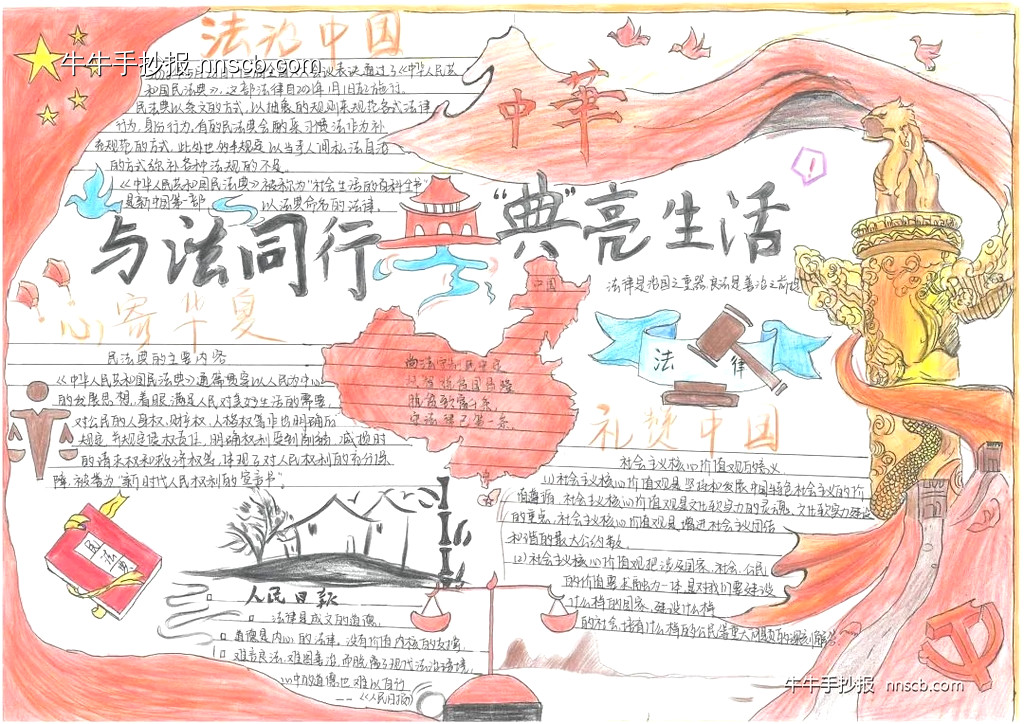 牛牛手抄报 nnscb.com
法治中国
和国民法典》,这部法律自2021年1月1日起施行。
民法典以条文的方式,以抽象的规则来规范各式法律
行为,身份行为,有的民法典会酌采习惯法作为补
充规范的方式,此外也多半规定以当事人间私法自治
的方式弥补各种法规的不足。
《中华人民共和国民法典》被称为“社会生活的百科全书”
是新中国第一部
以法典命名的法律,
中華
与法同行
“典”亮生活
中国
法律是治国之重器,良法是善治之前提
法律
心寄华夏
民法典的主要内容
《中华人民共和国民法典》通篇贯穿以人民为中心
的发展思想,着眼满足人民对美好生活的需要,
对公民的人身权、财产权、人格权等作出明确的
规定,并规定侵权责任,明确权利受到削弱、减损时
的请求权和救济权等,体现了对人民权利的充分保
障,被誉为“新时代人民权利的宣言书”。
民法典
礼赞中国
社会主义核心价值观的意义
(1)社会主义核心价值观是坚持和发展中国特色社会主义的价
值遵循,社会主义核心价值观是文化软实力的灵魂,文化软实力建设
的重点,社会主义核心价值观是增进社会团结
和谐的最大公约数。
(2)社会主义核心价值观把涉及国家、社会、公民
的价值要求融为一体,是对我们要建设
什么样的国家、建设什么样
的社会、培育什么样的公民等重大问题的深刻解答。
人民日报
法律是成文的道德,
道德是内心的法律,没有价值内核的支撑,
难言良法,难图善治,而脱离了现代法治语境,
心中的道德也难以自行
——《人民日报》
牛牛手抄报 nnscb.com